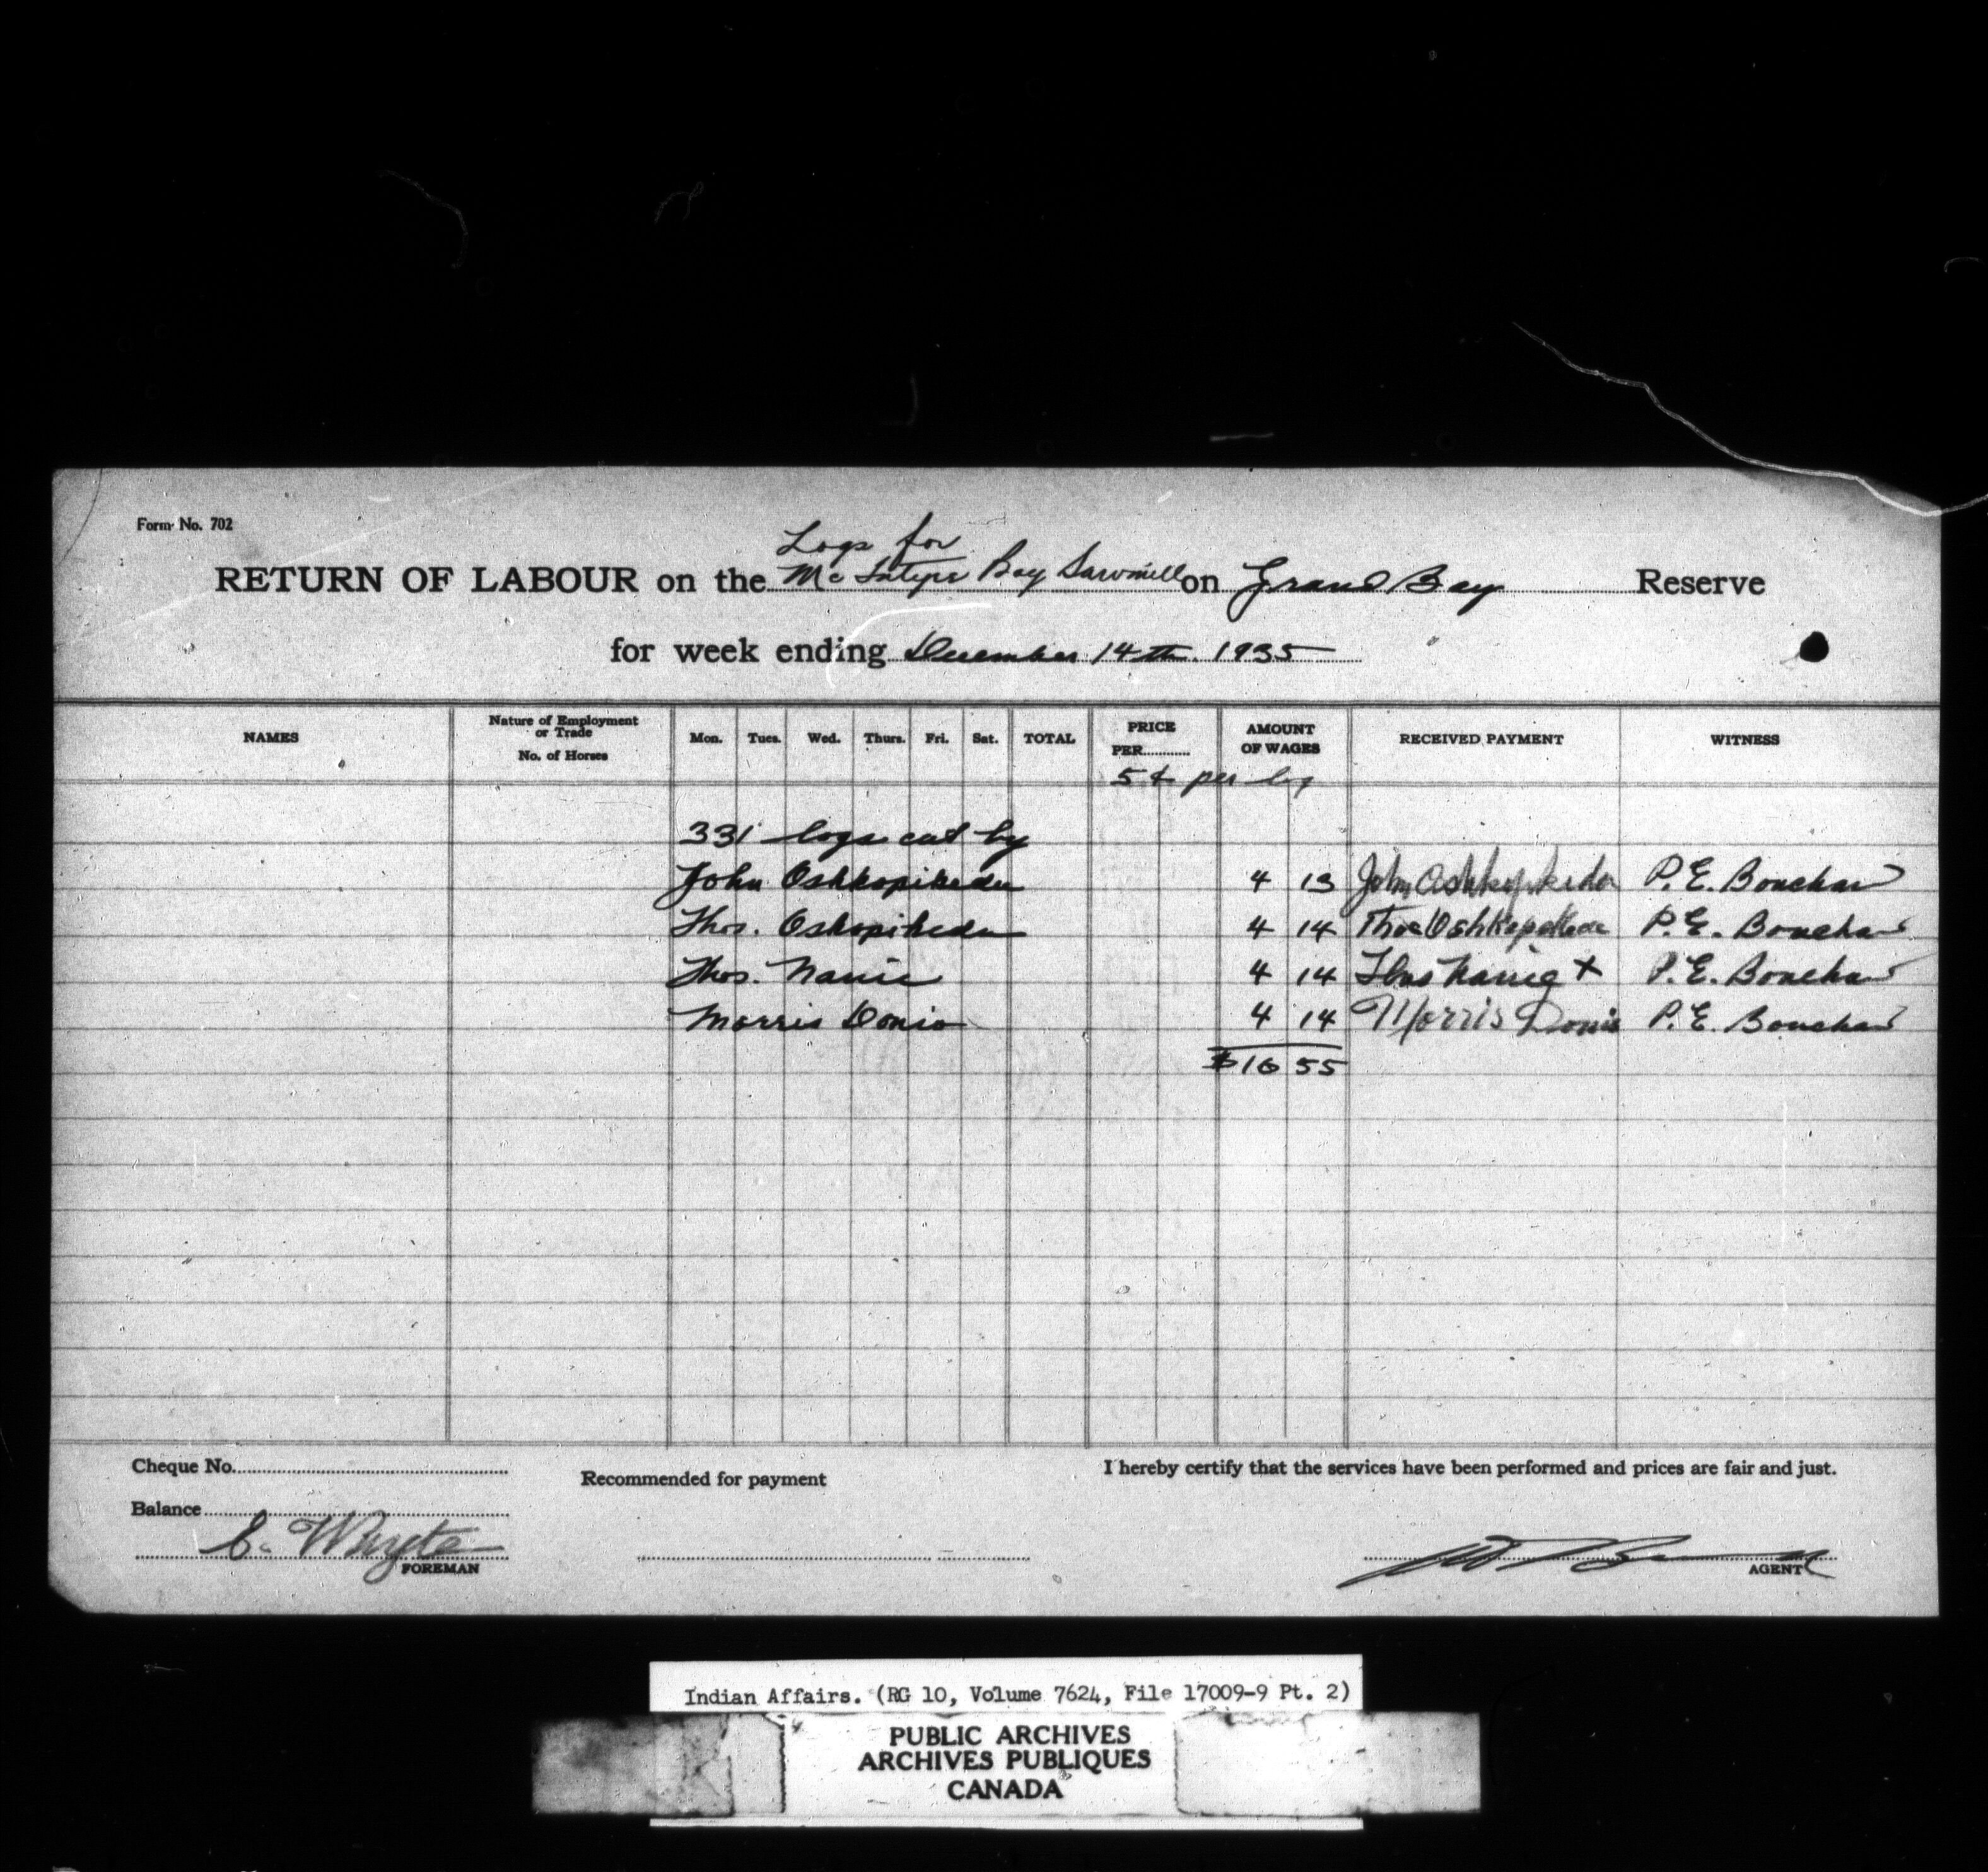 Form No. 702
Logs for
RETURN OF LABOUR on the McIntyre Bay Sawmill on Grand Bay Reserve
for week ending December 14th. 1935
NAMES Nature of Employment or Trade No. of Horses Mon. Tues. Wed. Thurs. Fri. Sat. TOTAL PRICE PER AMOUNT OF WAGES RECEIVED PAYMENT WITNESS
5¢ per log
331 logs cut by
John Oshkopikeda 4 13 John P. E. Bouchard
Thos. Oskopikeda 4 14 Thos P. E. Bouchard
Thos. Nanie 4 14 Thos Nanie X P. E. Bouchard
Morris Donio 4 14 Morris P. E. Bouchard
$16 55
Cheque No.
Recommended for payment
I hereby certify that the services have been performed and prices are fair and just.
Balance
C. Whyte
FOREMAN
AGENT
Indian Affairs. (RG 10, Volume 7624, File 17009-9 Pt. 2)
PUBLIC ARCHIVES
ARCHIVES PUBLIQUES
CANADA